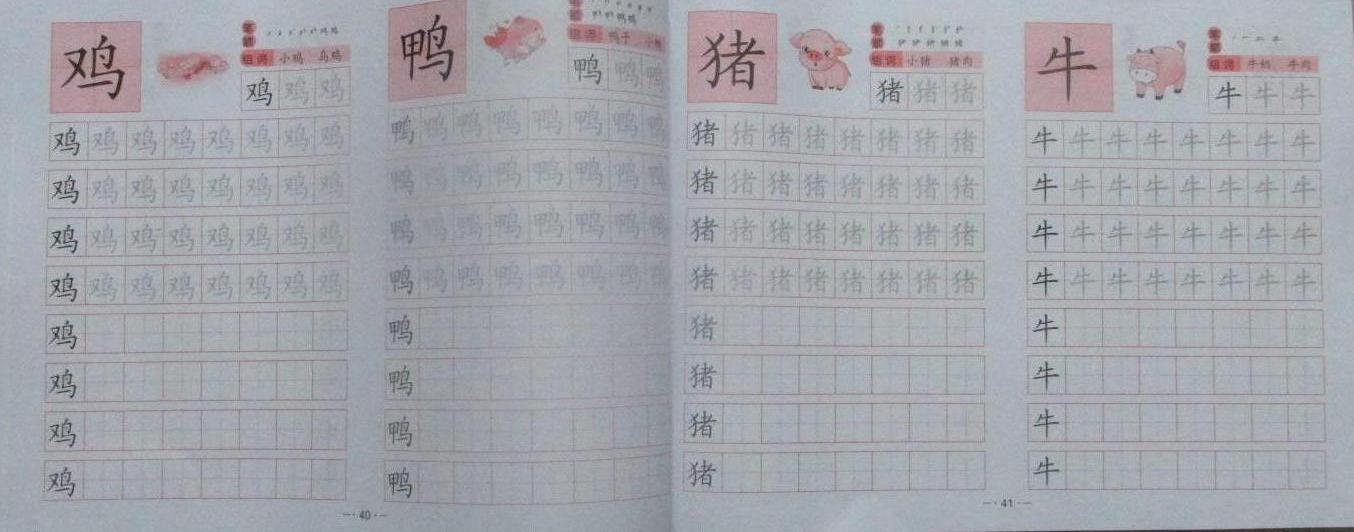 鸡
笔顺
组词 小鸡 乌鸡
鸡 鸡 鸡
鸡 鸡 鸡 鸡 鸡 鸡 鸡 鸡
鸡 鸡 鸡 鸡 鸡 鸡 鸡 鸡
鸡 鸡 鸡 鸡 鸡 鸡 鸡 鸡
鸡 鸡 鸡 鸡 鸡 鸡 鸡 鸡
鸡
鸡
鸡
鸡
鸭
笔顺
组词 鸭子 小鸭
鸭 鸭 鸭
鸭 鸭 鸭 鸭 鸭 鸭 鸭 鸭
鸭 鸭 鸭 鸭 鸭 鸭 鸭 鸭
鸭 鸭 鸭 鸭 鸭 鸭 鸭 鸭
鸭 鸭 鸭 鸭 鸭 鸭 鸭 鸭
鸭
鸭
鸭
鸭
-·40·-
猪
笔顺
组词 小猪 猪肉
猪 猪 猪
猪 猪 猪 猪 猪 猪 猪 猪
猪 猪 猪 猪 猪 猪 猪 猪
猪 猪 猪 猪 猪 猪 猪 猪
猪 猪 猪 猪 猪 猪 猪 猪
猪
猪
猪
猪
牛
笔顺
组词 牛奶 牛肉
牛 牛 牛
牛 牛 牛 牛 牛 牛 牛 牛
牛 牛 牛 牛 牛 牛 牛 牛
牛 牛 牛 牛 牛 牛 牛 牛
牛 牛 牛 牛 牛 牛 牛 牛
牛
牛
牛
牛
-·41·-